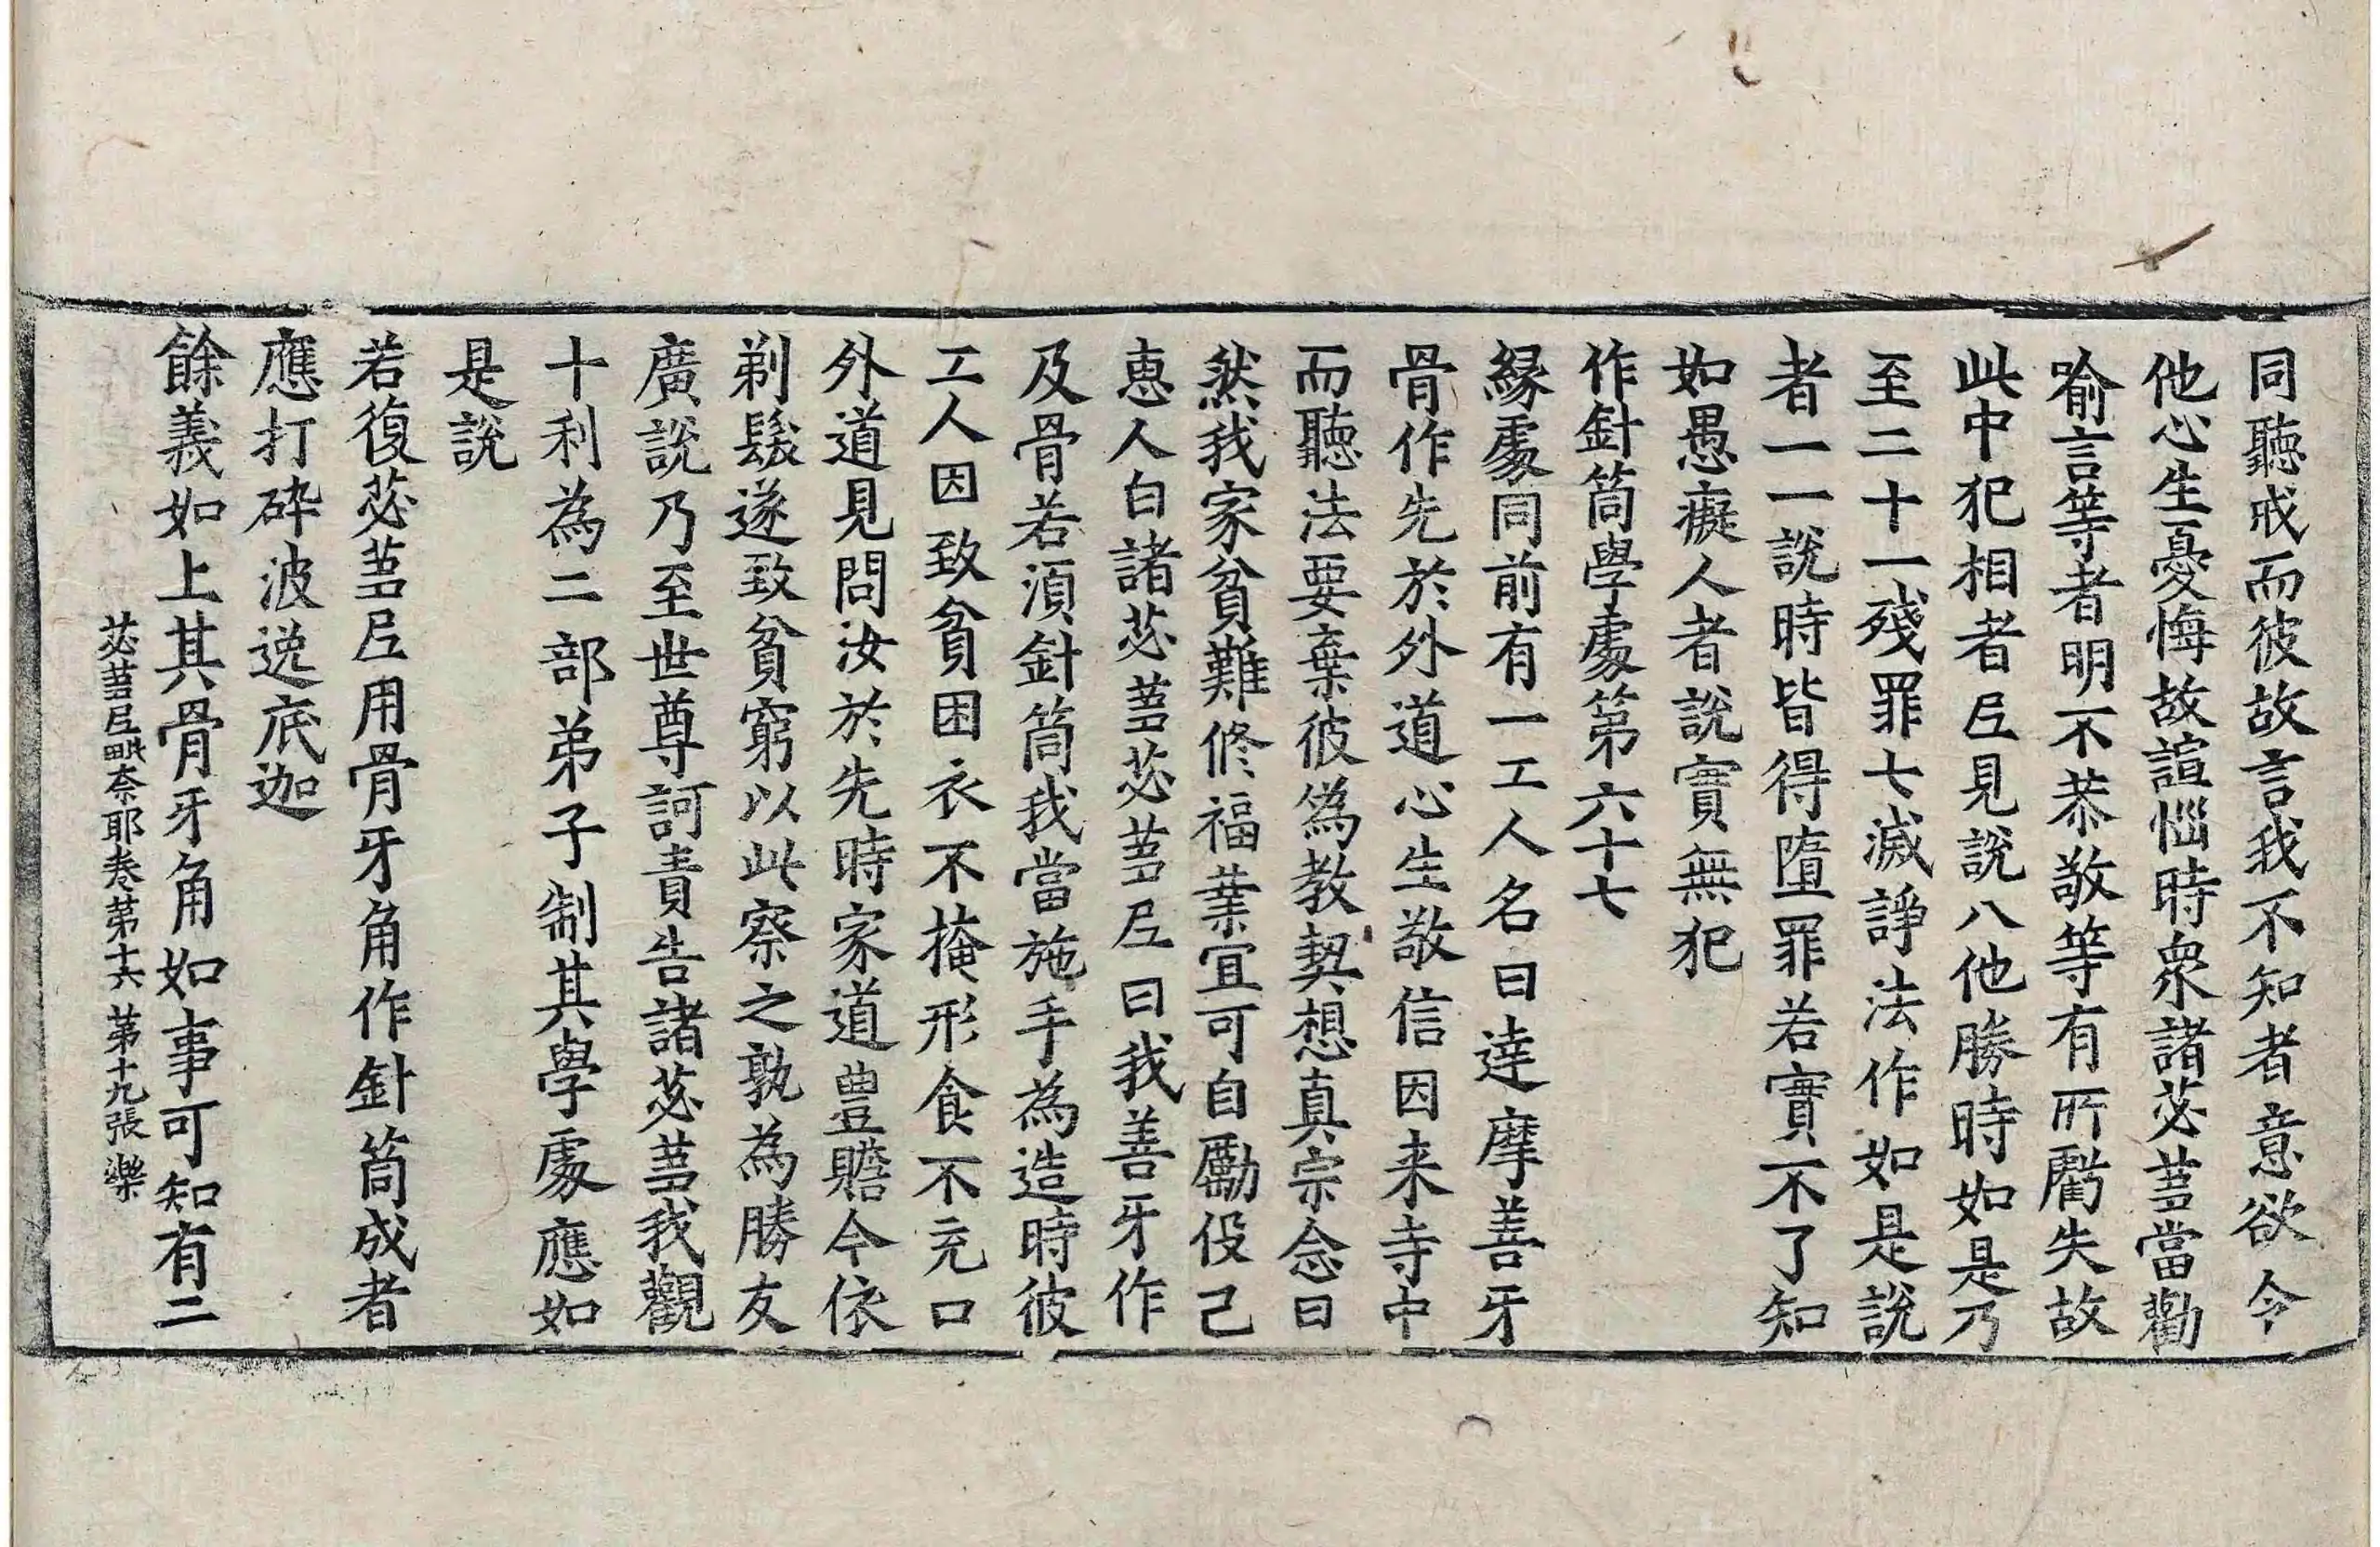 同聽戒而彼故言我不知者意欲令
他心生憂悔故諠惱時衆諸苾芻當勸
喻言等者明不恭敬等有所虧失故
此中犯相者𡰱見說八他勝時如是乃
至二十一殘罪七滅諍法作如是說
者一一說時皆得墮罪若實不了知
如愚癡人者說實無犯
作針筒學處第六十七
緣處同前有一工人名曰達摩善牙
骨作先於外道心生敬信因来寺中
而聽法要棄彼爲教契想真宗念曰
然我家貧難修福業宜可自勵伇己
惠人白諸苾芻苾芻𡰱曰我善牙作
及骨若湏針筒我當施手為造時彼
工人因致貧困衣不掩形食不充口
外道見問汝於先時家道豊贍今依
剃髮遂致貧窮以此察之孰為勝友
廣說乃至世尊訶責告諸苾芻我觀
十利為二部弟子制其學處應如
是說
若復苾芻𡰱用骨牙角作針筒成者
應打碎波逸底迦
餘義如上其骨牙角如事可知有二
苾芻𡰱毗奈耶卷第十六 第十九張 樂